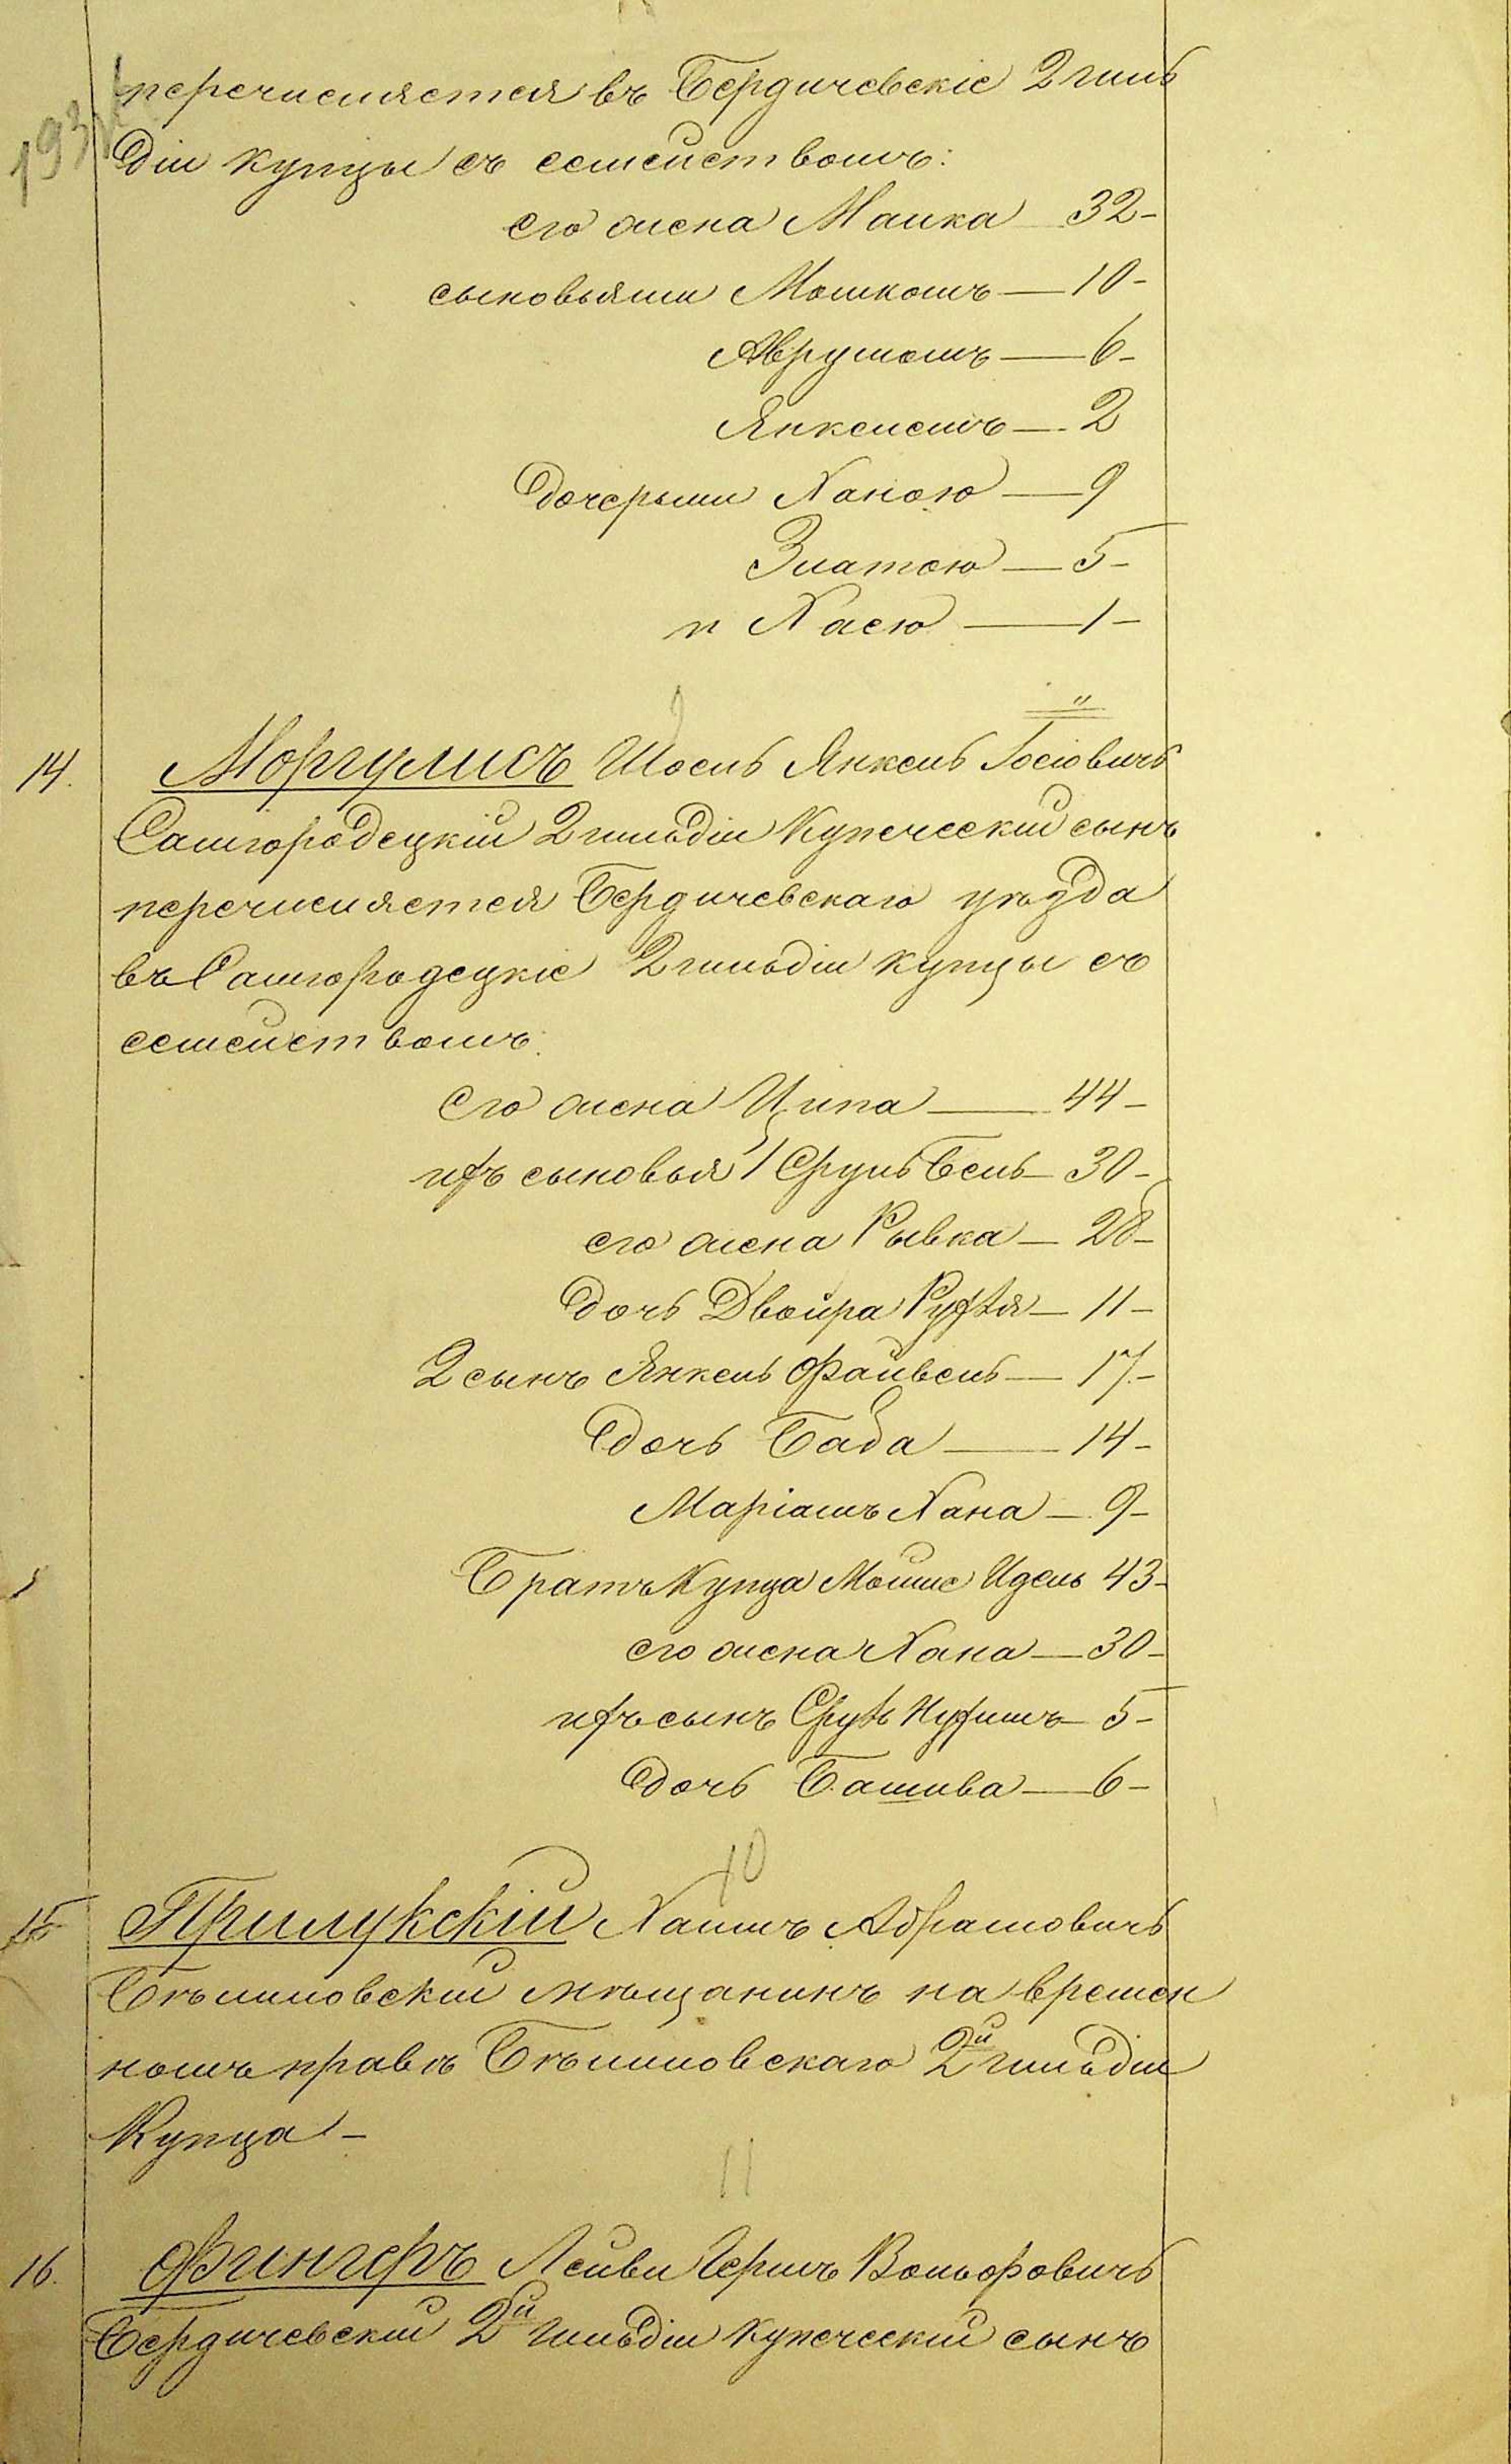 перечисляется въ Бердичевскіе 2 гиль
діи купцы съ семействомъ:
его жена Маика 32-
сыновьями Мошкомъ — 10-
Аврумомъ — 6-
Янкелемъ — 2
дочерьми Ханою — 9
Златою — 5-
и Хаею — 1-
9
14. Моргулисъ Шоель Янкель Іосіовичъ
Самгородецкій 2 гильдіи Купеческій сынъ
перечисляется Бердичевскаго уѣзда
въ Самгородецкіе 2 гильдіи купцы съ
семействомъ:
его жена Ципа — 44-
ихъ сыновья 1 Сруль Бень — 30-
его жена Рывка — 28-
дочь Двойра Рухля — 11-
2 сынъ Янкель Файвель — 17-
дочь Баба — 14-
Маріамъ Хана — 9-
Братъ Купца Мойше Идель 43-
его жена Хана — 30-
ихъ сынъ Сруль Нухимъ — 5-
дочь Башива — 6-
10
15 Прилукскій Хаимъ Абрамовичъ
Бѣлиловскій мѣщанинъ на времен
номъ правѣ Бѣлиловскаго 2й гильдіи
Купца -
11
16. Фингеръ Лейви Гершъ Вольфовичъ
Бердичевскій 2й гильдіи купеческій сынъ